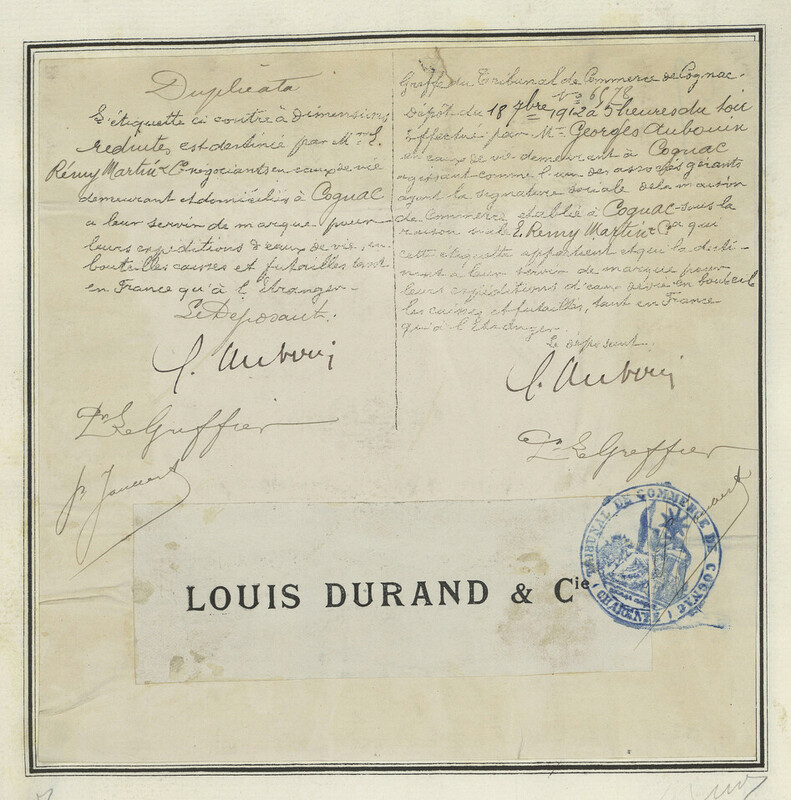 Duplicata
L'étiquette ci contre à dimensions
réduites est destinée par M.rs E.
Rémy Martin & Co négociants en eaux de vie
demeurant et domiciliés à Cognac
a leur servir de marque pour
leurs expéditions d'eaux de vie, en
bouteilles caisses et futailles tant
en France qu'à l'Etranger.
Le Déposant.
G. Aubouin
Pr Le Greffier
Greffe du Tribunal de Commerce de Cognac.
No
Dépôt du 18 7bre 1912 à 5 heures du soir
Effectué par Mr Georges Aubouin
en eaux de vie demeurant à Cognac
agissant comme l'un des associés gérants
ayant la signature sociale de la maison
de Commerce établie à Cognac sous la
raison sociale E. Remy Martin & Co que
cette étiquette appartient et qu'il a desti-
née à leur servir de marque pour
leurs expéditions d'eaux de vie en bouteil-
les caisses et futailles, tant en France
qu'à l'Etranger.
Le déposant.
G. Aubouin
Pr Le Greffier
LOUIS DURAND & Cie
TRIBUNAL DE COMMERCE DE COGNAC (CHARENTE)